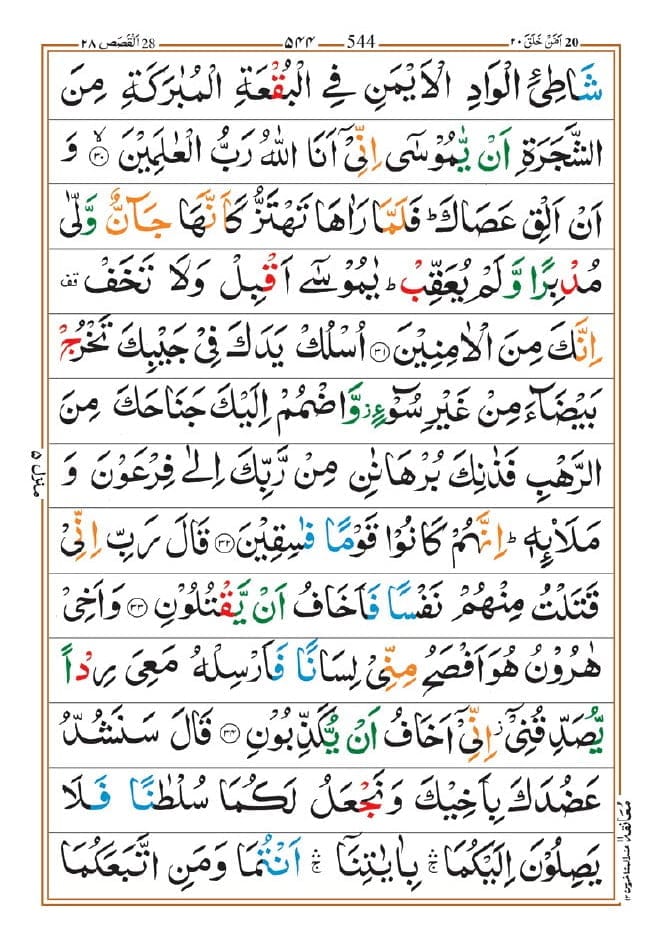 20 اَمَّنْ خَلَقَ ٢٠
544 ۵۴۴
28 اَلْقَصَص ٢٨
شَاطِئِ الْوَادِ الْاَيْمَنِ فِي الْبُقْعَةِ الْمُبٰرَكَةِ مِنَ
الشَّجَرَةِ اَنْ يّٰمُوْسٰٓى اِنِّيْٓ اَنَا اللّٰهُ رَبُّ الْعٰلَمِيْنَ ۙ۝۳۰ وَ
اَنْ اَلْقِ عَصَاكَ ؕ فَلَمَّا رَاٰهَا تَهْتَزُّ كَاَنَّهَا جَآنٌّ وَّلّٰى
مُدْبِرًا وَّلَمْ يُعَقِّبْ ؕ يٰمُوْسٰٓى اَقْبِلْ وَلَا تَخَفْ قف
اِنَّكَ مِنَ الْاٰمِنِيْنَ ۝۳۱ اُسْلُكْ يَدَكَ فِيْ جَيْبِكَ تَخْرُجْ
بَيْضَآءَ مِنْ غَيْرِ سُوْٓءٍ ؗ وَّاضْمُمْ اِلَيْكَ جَنَاحَكَ مِنَ
الرَّهْبِ فَذٰنِكَ بُرْهَانٰنِ مِنْ رَّبِّكَ اِلٰى فِرْعَوْنَ وَ
مَلَا۟ئِهٖ ؕ اِنَّهُمْ كَانُوْا قَوْمًا فٰسِقِيْنَ ۝۳۲ قَالَ رَبِّ اِنِّيْ
قَتَلْتُ مِنْهُمْ نَفْسًا فَاَخَافُ اَنْ يَّقْتُلُوْنِ ۝۳۳ وَاَخِيْ
هٰرُوْنُ هُوَ اَفْصَحُ مِنِّيْ لِسَانًا فَاَرْسِلْهُ مَعِيَ رِدْاً
يُّصَدِّقُنِيْٓ ؗ اِنِّيْٓ اَخَافُ اَنْ يُّكَذِّبُوْنِ ۝۳۴ قَالَ سَنَشُدُّ
عَضُدَكَ بِاَخِيْكَ وَنَجْعَلُ لَكُمَا سُلْطٰنًا فَلَا
يَصِلُوْنَ اِلَيْكُمَا ۛۚ بِاٰيٰتِنَآ ۛۚ اَنْتُمَا وَمَنِ اتَّبَعَكُمَا
منزل ۵
معانقة